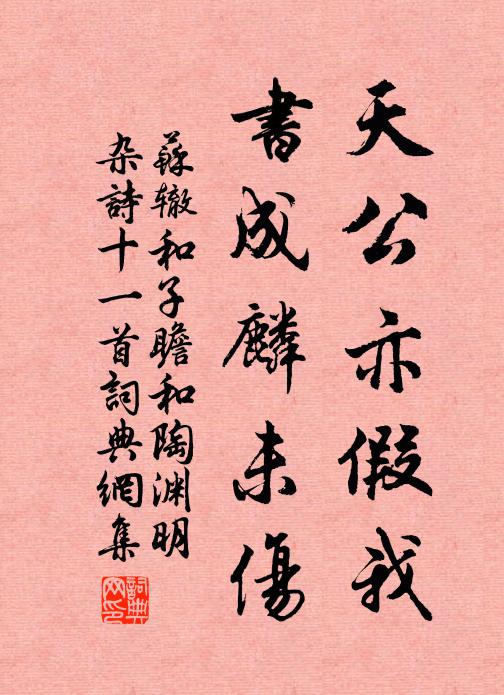 天公亦假我
書成麟未傷
蘇辙和子瞻和陶渊明
杂詩十一首詞典網集
詞典
网印